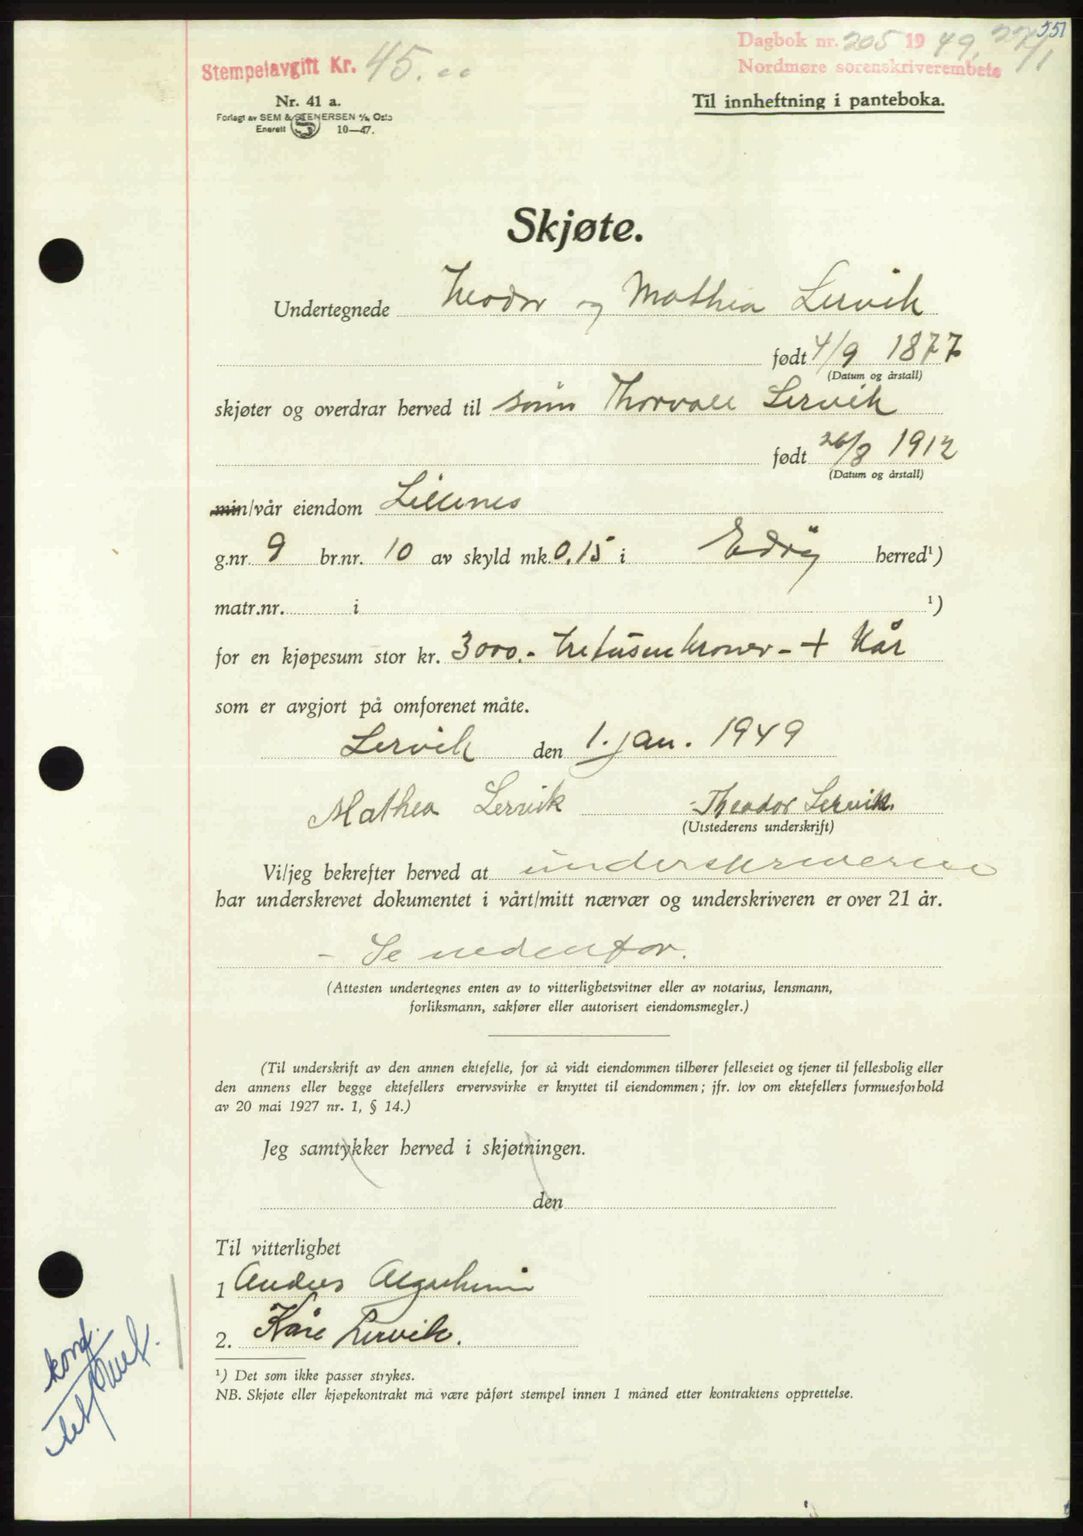 551
Dagbok nr. 205 1949, 27/1
Nordmøre sorenskriverembete
Stempelavgift Kr. 45.00
Nr. 41 a.
Forlagt av SEM & STENERSEN A/S, Oslo
Enerett S 10—47.
Til innheftning i panteboka.
Skjøte.
Undertegnede Theodor og Mathea Lervik
født 4/9 1877
(Datum og årstall)
skjøter og overdrar herved til sønn Thorvall Lervik
født 26/8 1912
(Datum og årstall)
min/vår eiendom Lillenes
g.nr. 9 br.nr. 10 av skyld mk. 0,15 i Edøy herred¹)
matr.nr. i ¹)
for en kjøpesum stor kr. 3000.- tretusenkroner - + Kår
som er avgjort på omforenet måte.
Lervik den 1. jan. 1949
Mathea Lervik Theodor Lervik.
(Utstederens underskrift)
Vi/jeg bekrefter herved at underskriverne
har underskrevet dokumentet i vårt/mitt nærvær og underskriveren er over 21 år.
- Se nedenfor.
(Attesten undertegnes enten av to vitterlighetsvitner eller av notarius, lensmann,
forliksmann, sakfører eller autorisert eiendomsmegler.)
(Til underskrift av den annen ektefelle, for så vidt eiendommen tilhører felleseiet og tjener til fellesbolig eller
den annens eller begge ektefellers ervervsvirke er knyttet til eiendommen; jfr. lov om ektefellers formuesforhold
av 20 mai 1927 nr. 1, § 14.)
Jeg samtykker herved i skjøtningen.
den
Til vitterlighet
1 Anders
2. Kåre Lervik.
¹) Det som ikke passer strykes.
NB. Skjøte eller kjøpekontrakt må være påført stempel innen 1 måned etter kontraktens opprettelse.
konf.